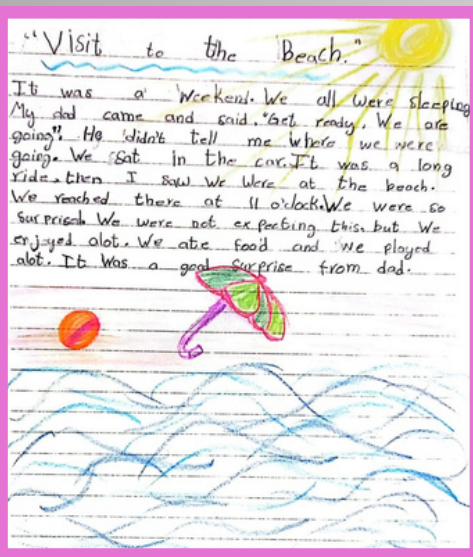 "Visit to the Beach."
It was a weekend. We all were sleeping
My dad came and said, "Get ready. We are
going". He didn't tell me where we were
going. We sat in the car. It was a long
ride, then I saw we were at the beach.
We reached there at 11 o'clock. We were so
surprised. We were not expecting this. but We
enjoyed alot. We ate food and we played
alot. It was a good surprise from dad.